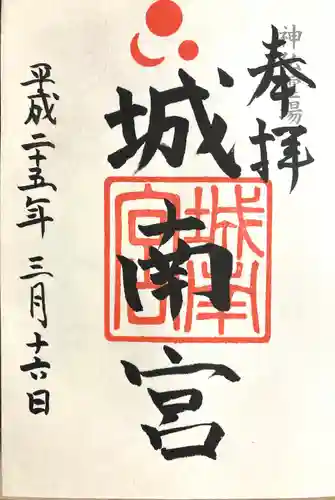 奉拝
城南宮
城南宮
平成二十五年三月十六日